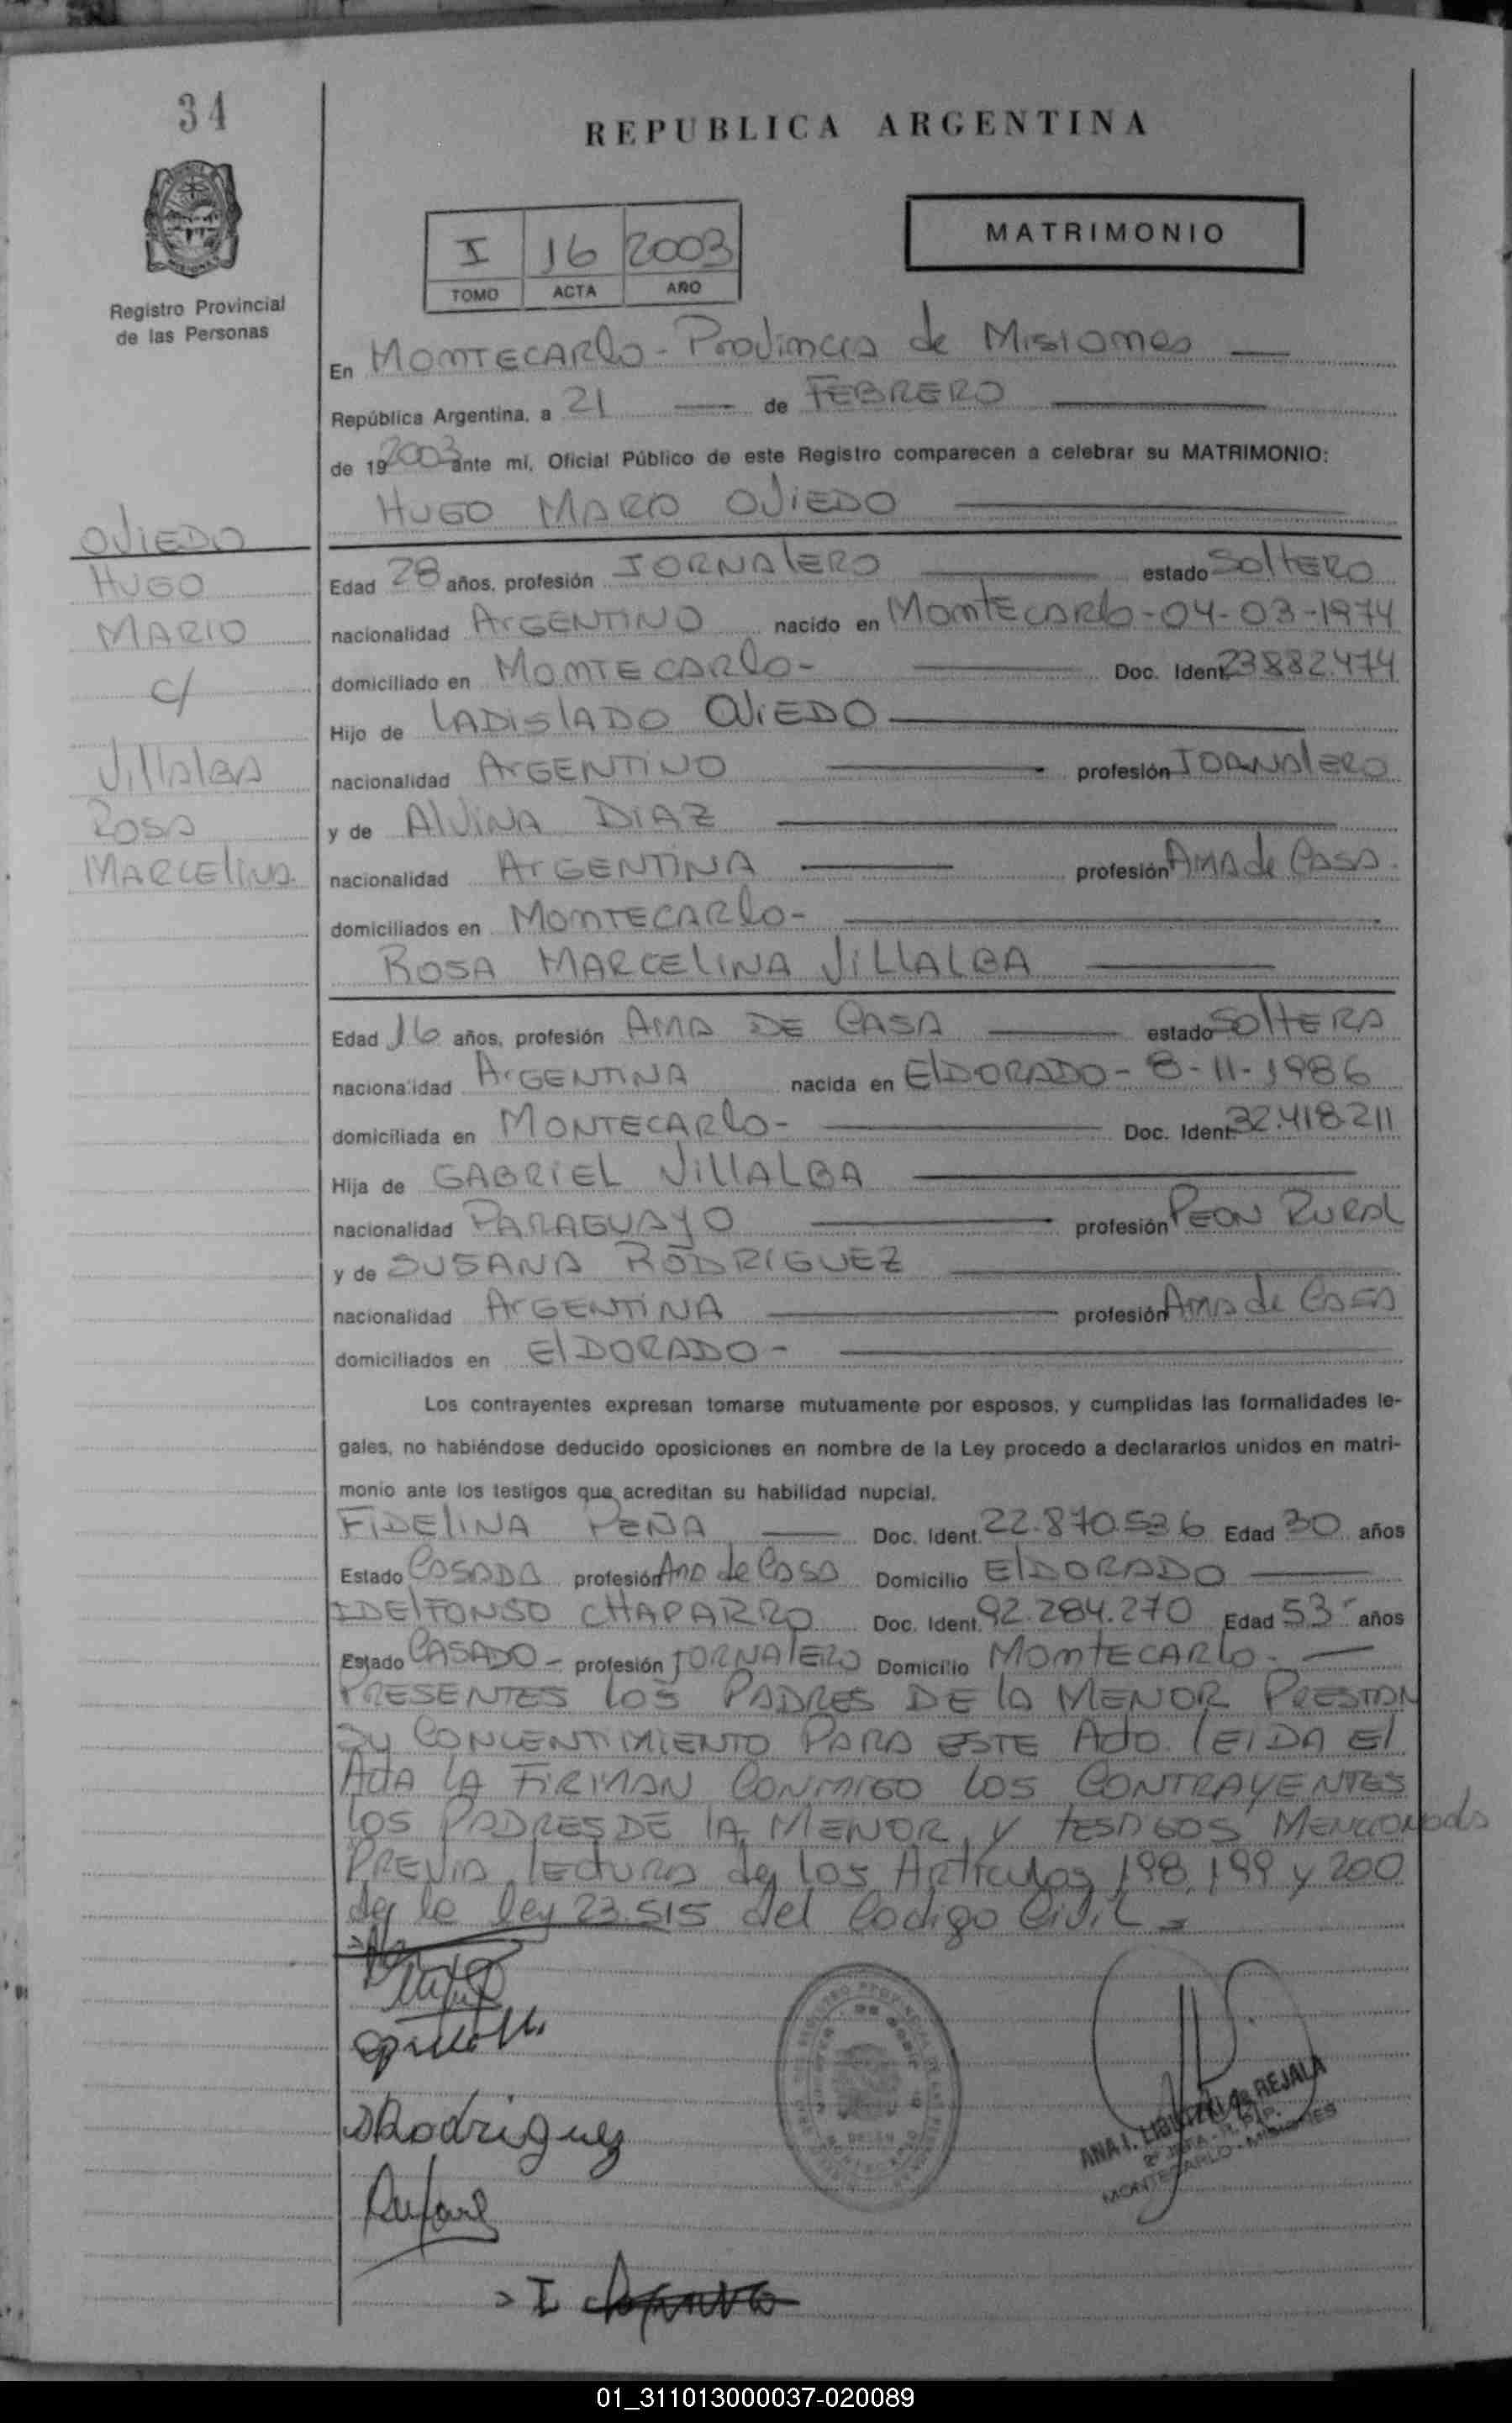 34
REPUBLICA ARGENTINA
MATRIMONIO
I 16 2003
TOMO ACTA AÑO
Registro Provincial
de las Personas
En MONTECARlo - Provincia de Misiones
República Argentina, a 21 de FEBRERO
de 19 2003 ante mí, Oficial Público de este Registro comparecen a celebrar su MATRIMONIO:
HUGO MARIO OVIEDO
OVIEDO
HUGO
MARIO
c/
VillalBA
ROSA
MARCElINA
Edad 28 años, profesión JORNAlERO estado SOltERO
nacionalidad ArGENTINO nacido en MontECARlo - 04-03-1974
domiciliado en MONTECARlo - Doc. Ident. 23882.474
Hijo de LADISlADO OViEDO
nacionalidad ArGENTINO profesión JORNAlERO
y de AlViNA DIAZ
nacionalidad ArGENTINA profesión AMA de CASA.
domiciliados en MONTECARlo -
ROSA MARCELINA VILLALBA
Edad 16 años, profesión AMA DE CASA estado SOltERA
nacionalidad ArGENTINA nacida en ElDORADO - 8-11-1986
domiciliada en MONTECARlo - Doc. Ident. 32.418.211
Hija de GABRIEL VillALBA
nacionalidad PARAGUAYO profesión PEON RURAL
y de SUSANA RODRIGUEZ
nacionalidad ArGENTINA profesión AMA de CASA
domiciliados en ElDORADO -
Los contrayentes expresan tomarse mutuamente por esposos, y cumplidas las formalidades le-
gales, no habiéndose deducido oposiciones en nombre de la Ley procedo a declararlos unidos en matri-
monio ante los testigos que acreditan su habilidad nupcial.
FIDElINA PEÑA Doc. Ident. 22.870.536 Edad 30 años
Estado CASADA profesión Ama de CASA Domicilio ElDORADO
IDElFONSO CHAPARRO Doc. Ident. 92.284.270 Edad 53 años
Estado CASADO - profesión JORNAlERO Domicilio MontECARlo -
PRESENTES lOS PADRES DE lA MENOR PRESTAN
SU CONCENTIMIENTO PARA ESTE Acto. lEIDA El
ActA LA FIRMAN CONMIGO LOS CONTRAYENTES
LOS PADRES DE lA MENOR, y tEStIGOS MENCIONADos
PREVIA lECtURA de los Artículos 198, 199 y 200
de la ley 23.515 del Codigo Civil =
SRodriguez
ANA I. REJALA
2º JEFA - R.P.P.
MONTECARLO - MISIONES
01_311013000037-020089